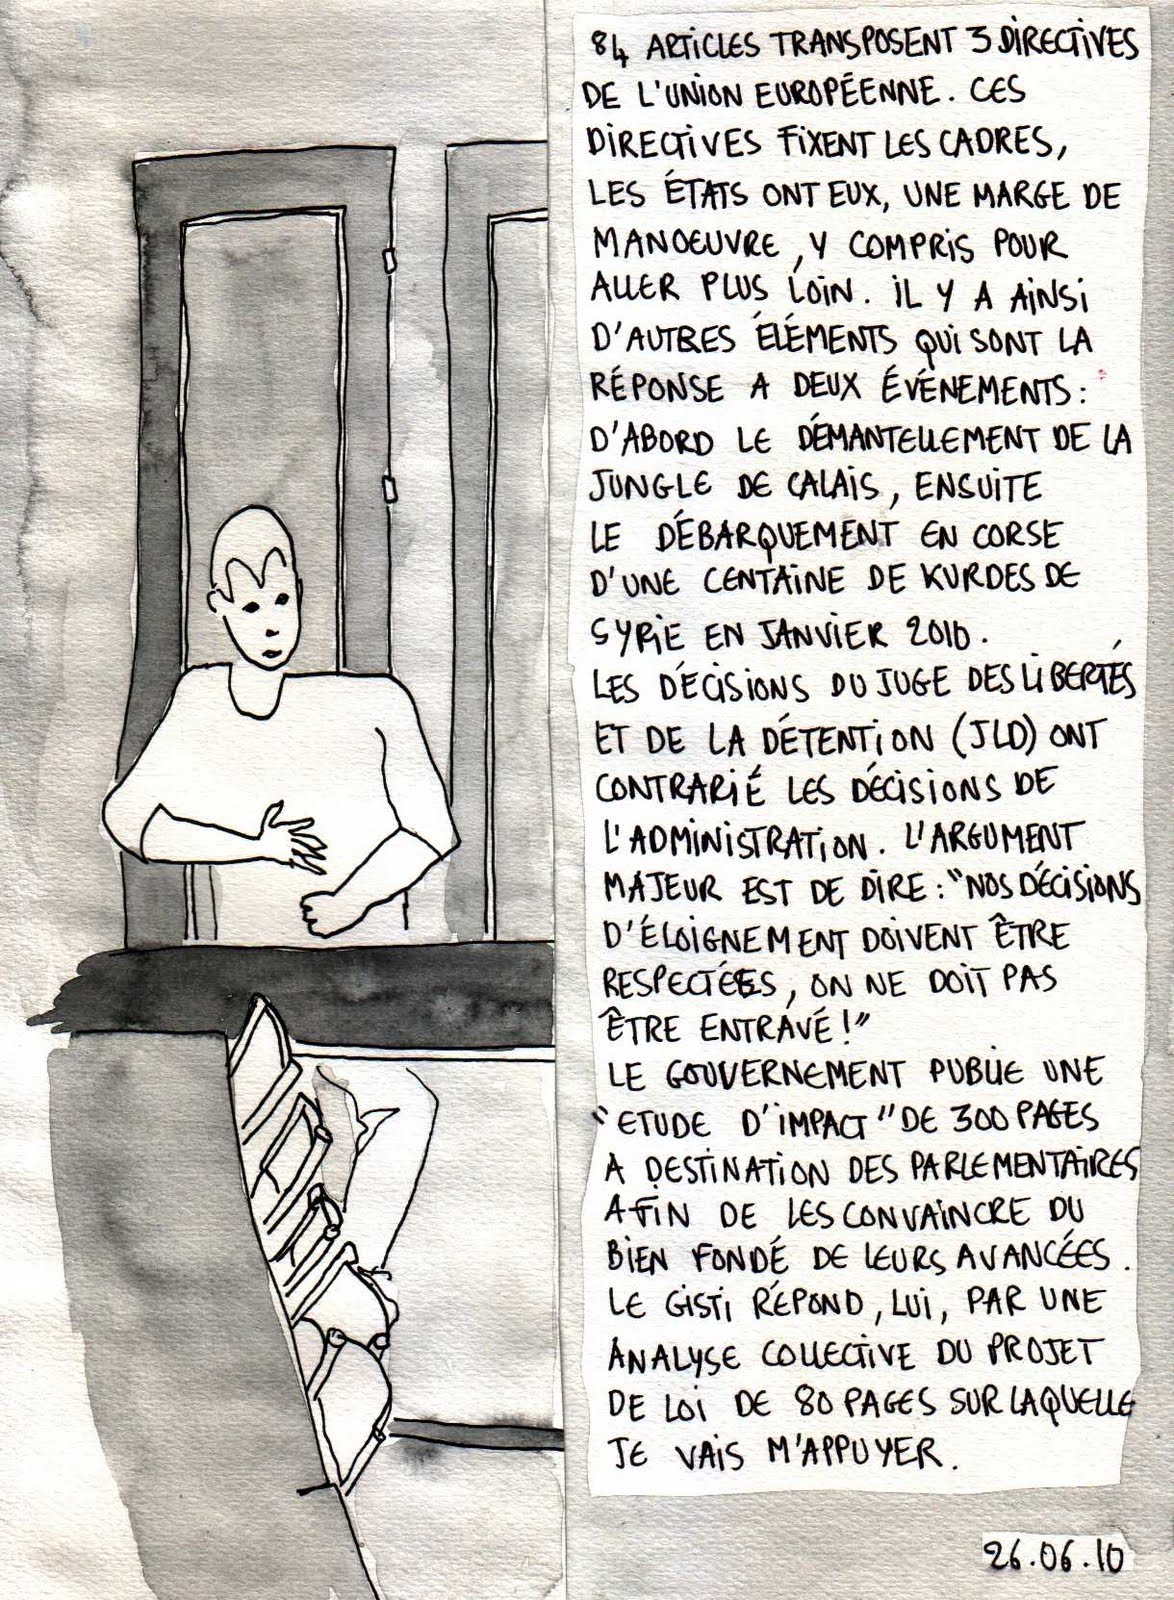 84 ARTICLES TRANSPOSENT 3 DIRECTIVES
DE L'UNION EUROPÉENNE. CES
DIRECTIVES FIXENT LES CADRES,
LES ÉTATS ONT EUX, UNE MARGE DE
MANOEUVRE, Y COMPRIS POUR
ALLER PLUS LOIN. IL Y A AINSI
D'AUTRES ÉLÉMENTS QUI SONT LA
RÉPONSE A DEUX ÉVÉNEMENTS :
D'ABORD LE DÉMANTELLEMENT DE LA
JUNGLE DE CALAIS, ENSUITE
LE DÉBARQUEMENT EN CORSE
D'UNE CENTAINE DE KURDES DE
SYRIE EN JANVIER 2010.
LES DÉCISIONS DU JUGE DES LIBERTÉS
ET DE LA DÉTENTION (JLD) ONT
CONTRARIÉ LES DÉCISIONS DE
L'ADMINISTRATION. L'ARGUMENT
MAJEUR EST DE DIRE : "NOS DÉCISIONS
D'ÉLOIGNEMENT DOIVENT ÊTRE
RESPECTÉES, ON NE DOIT PAS
ÊTRE ENTRAVÉ !"
LE GOUVERNEMENT PUBLIE UNE
"ETUDE D'IMPACT" DE 300 PAGES
A DESTINATION DES PARLEMENTAIRES
AFIN DE LES CONVAINCRE DU
BIEN FONDÉ DE LEURS AVANCÉES.
LE GISTI RÉPOND, LUI, PAR UNE
ANALYSE COLLECTIVE DU PROJET
DE LOI DE 80 PAGES SUR LAQUELLE
JE VAIS M'APPUYER.
26.06.10